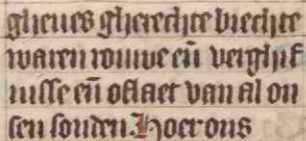 gheues gherechte biechte
waren rouwe en̄ verghif
nisse en̄ oflaet van al on
sen sonden. Hoer ons